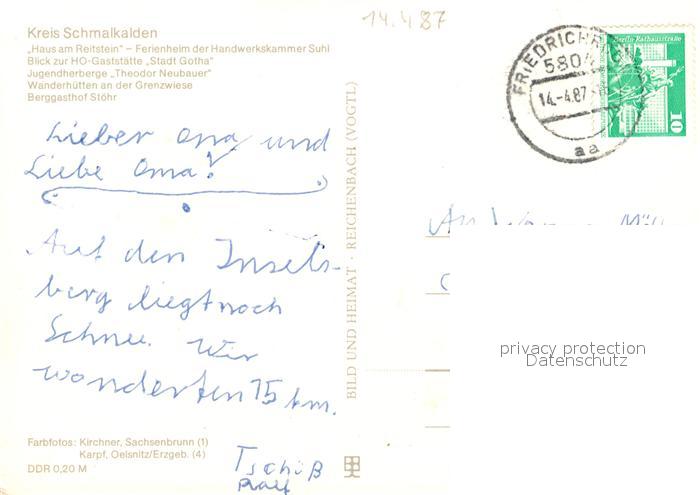 14.4.87
Kreis Schmalkalden
„Haus am Reitstein“ – Ferienheim der Handwerkskammer Suhl
Blick zur HO-Gaststätte „Stadt Gotha“
Jugendherberge „Theodor Neubauer“
Wanderhütten an der Grenzwiese
Berggasthof Stöhr
Lieber Opa und
Liebe Oma!
Auf den Insels-
berg liegt noch
Schnee. Wir
wanderten 15 km.
Tschüß
Ralf
Farbfotos: Kirchner, Sachsenbrunn (1)
Karpf, Oelsnitz/Erzgeb. (4)
DDR 0,20 M
BILD UND HEIMAT · REICHENBACH (VOGTL)
5804
14.-4.87
aa
Berlin-Rathausstraße
10
An
privacy protection
Datenschutz